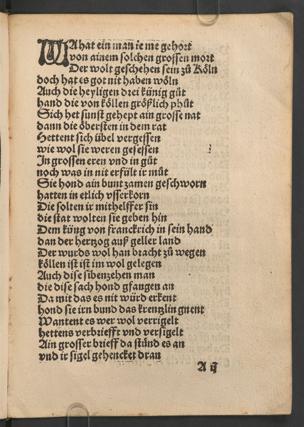 WA hat ein man ie me gehort
von ainem solchen grossen mort
Der wolt geschehen sein zů Köln
doch hat es got nit haben wöln
Auch die heyligen drei künig gůt
hand die von köllen größlich phůt
Sich het sunst gehept ain grosse nat
dann die öbersten in dem rat
Hettent sich übel vergessen
wie wol sie weren gesessen
In grossen eren vnd in gůt
noch was in nit erfült ir můt
Sie hond ain bunt zamen geschworn
hatten in etlich vsserkorn
Die solten ir mithelffer sin
die stat wolten sie geben hin
Dem küng von franckrich in sein hand
dan der hertzog auß geller land
Der wurds wol han bracht zů wegen
köllen ist ist im wol gelegen
Auch dise sibenzehen man
die dise sach hond gfangen an
Da mit das es nit würd erkent
hond sie irn bund das krentzlin gnent
Wantent es wer wol verrigelt
hettens verbriefft vnd versigelt
Ain grosser brieff da stůnd es an
vnd ir sigel gehencket dran
A ij